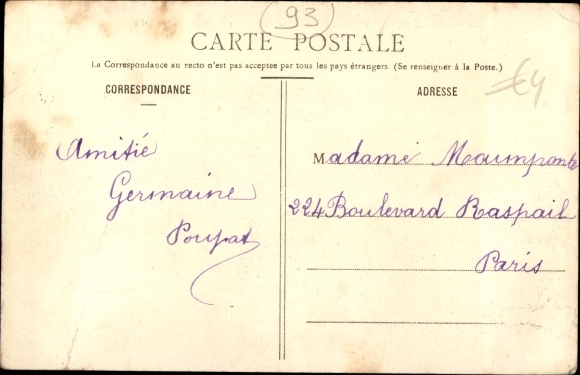 93
CARTE POSTALE
La Correspondance au recto n'est pas acceptee par tous les pays étrangers. (Se renseigner à la Poste.)
CORRESPONDANCE
Amitié
Germaine
Poupat
ADRESSE
€4
Madame
224 Boulevard Raspail
Paris